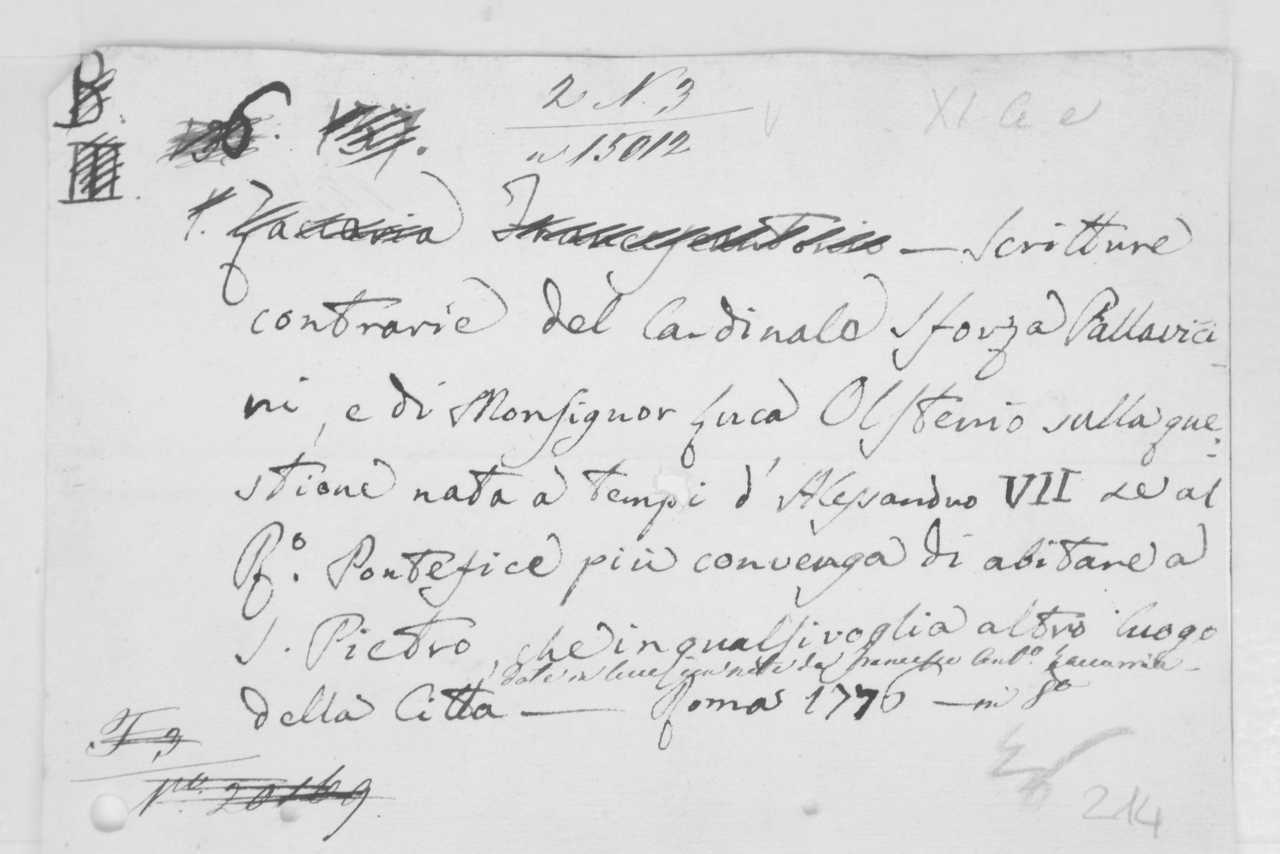 B.
III.
6.
2 N. 3
n 15012
XI C e
1. Zaccaria Francescantonio — Scritture
contrarie del Cardinale Sforza Pallavici
ni, e di Monsignor Luca Olstenio sulla que-
stione nata a tempi d'Alessandro VII se al
Rº. Pontefice più convenga di abitare a
S. Pietro, che in qualsivoglia altro luogo
date in luce con note da Francesco Antº. Zaccaria
della Città — Roma 1776 — in 8º
F 3
Nº. 20169
214